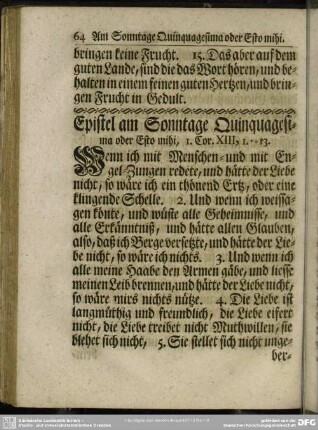 64 Am Sonntage Quinquagesima oder Esto mihi.
bringen keine Frucht. 15. Das aber auf dem
guten Lande, sind die das Wort hören, und be-
halten in einem feinen guten Hertzen, und brin-
gen Frucht in Gedult.
Epistel am Sonntage Quinquagesi-
ma oder Esto mihi, 1. Cor. XIII, 1.--13.
Wenn ich mit Menschen- und mit En-
gel-Zungen redete, und hätte der Liebe
nicht, so wäre ich ein thönend Ertz, oder eine
klingende Schelle. 2. Und wenn ich weissa-
gen könte, und wüste alle Geheimnisse, und
alle Erkänntniß, und hätte allen Glauben,
also, daß ich Berge versetzte, und hätte der Lie-
be nicht, so wäre ich nichts. 3. Und wenn ich
alle meine Haabe den Armen gäbe, und liesse
meinen Leib brennen, und hätte der Liebe nicht,
so wäre mirs nichts nütze. 4. Die Liebe ist
langmüthig und freundlich, die Liebe eifert
nicht, die Liebe treibet nicht Muthwillen, sie
blehet sich nicht, 5. Sie stellet sich nicht unge-
ber-
DFG